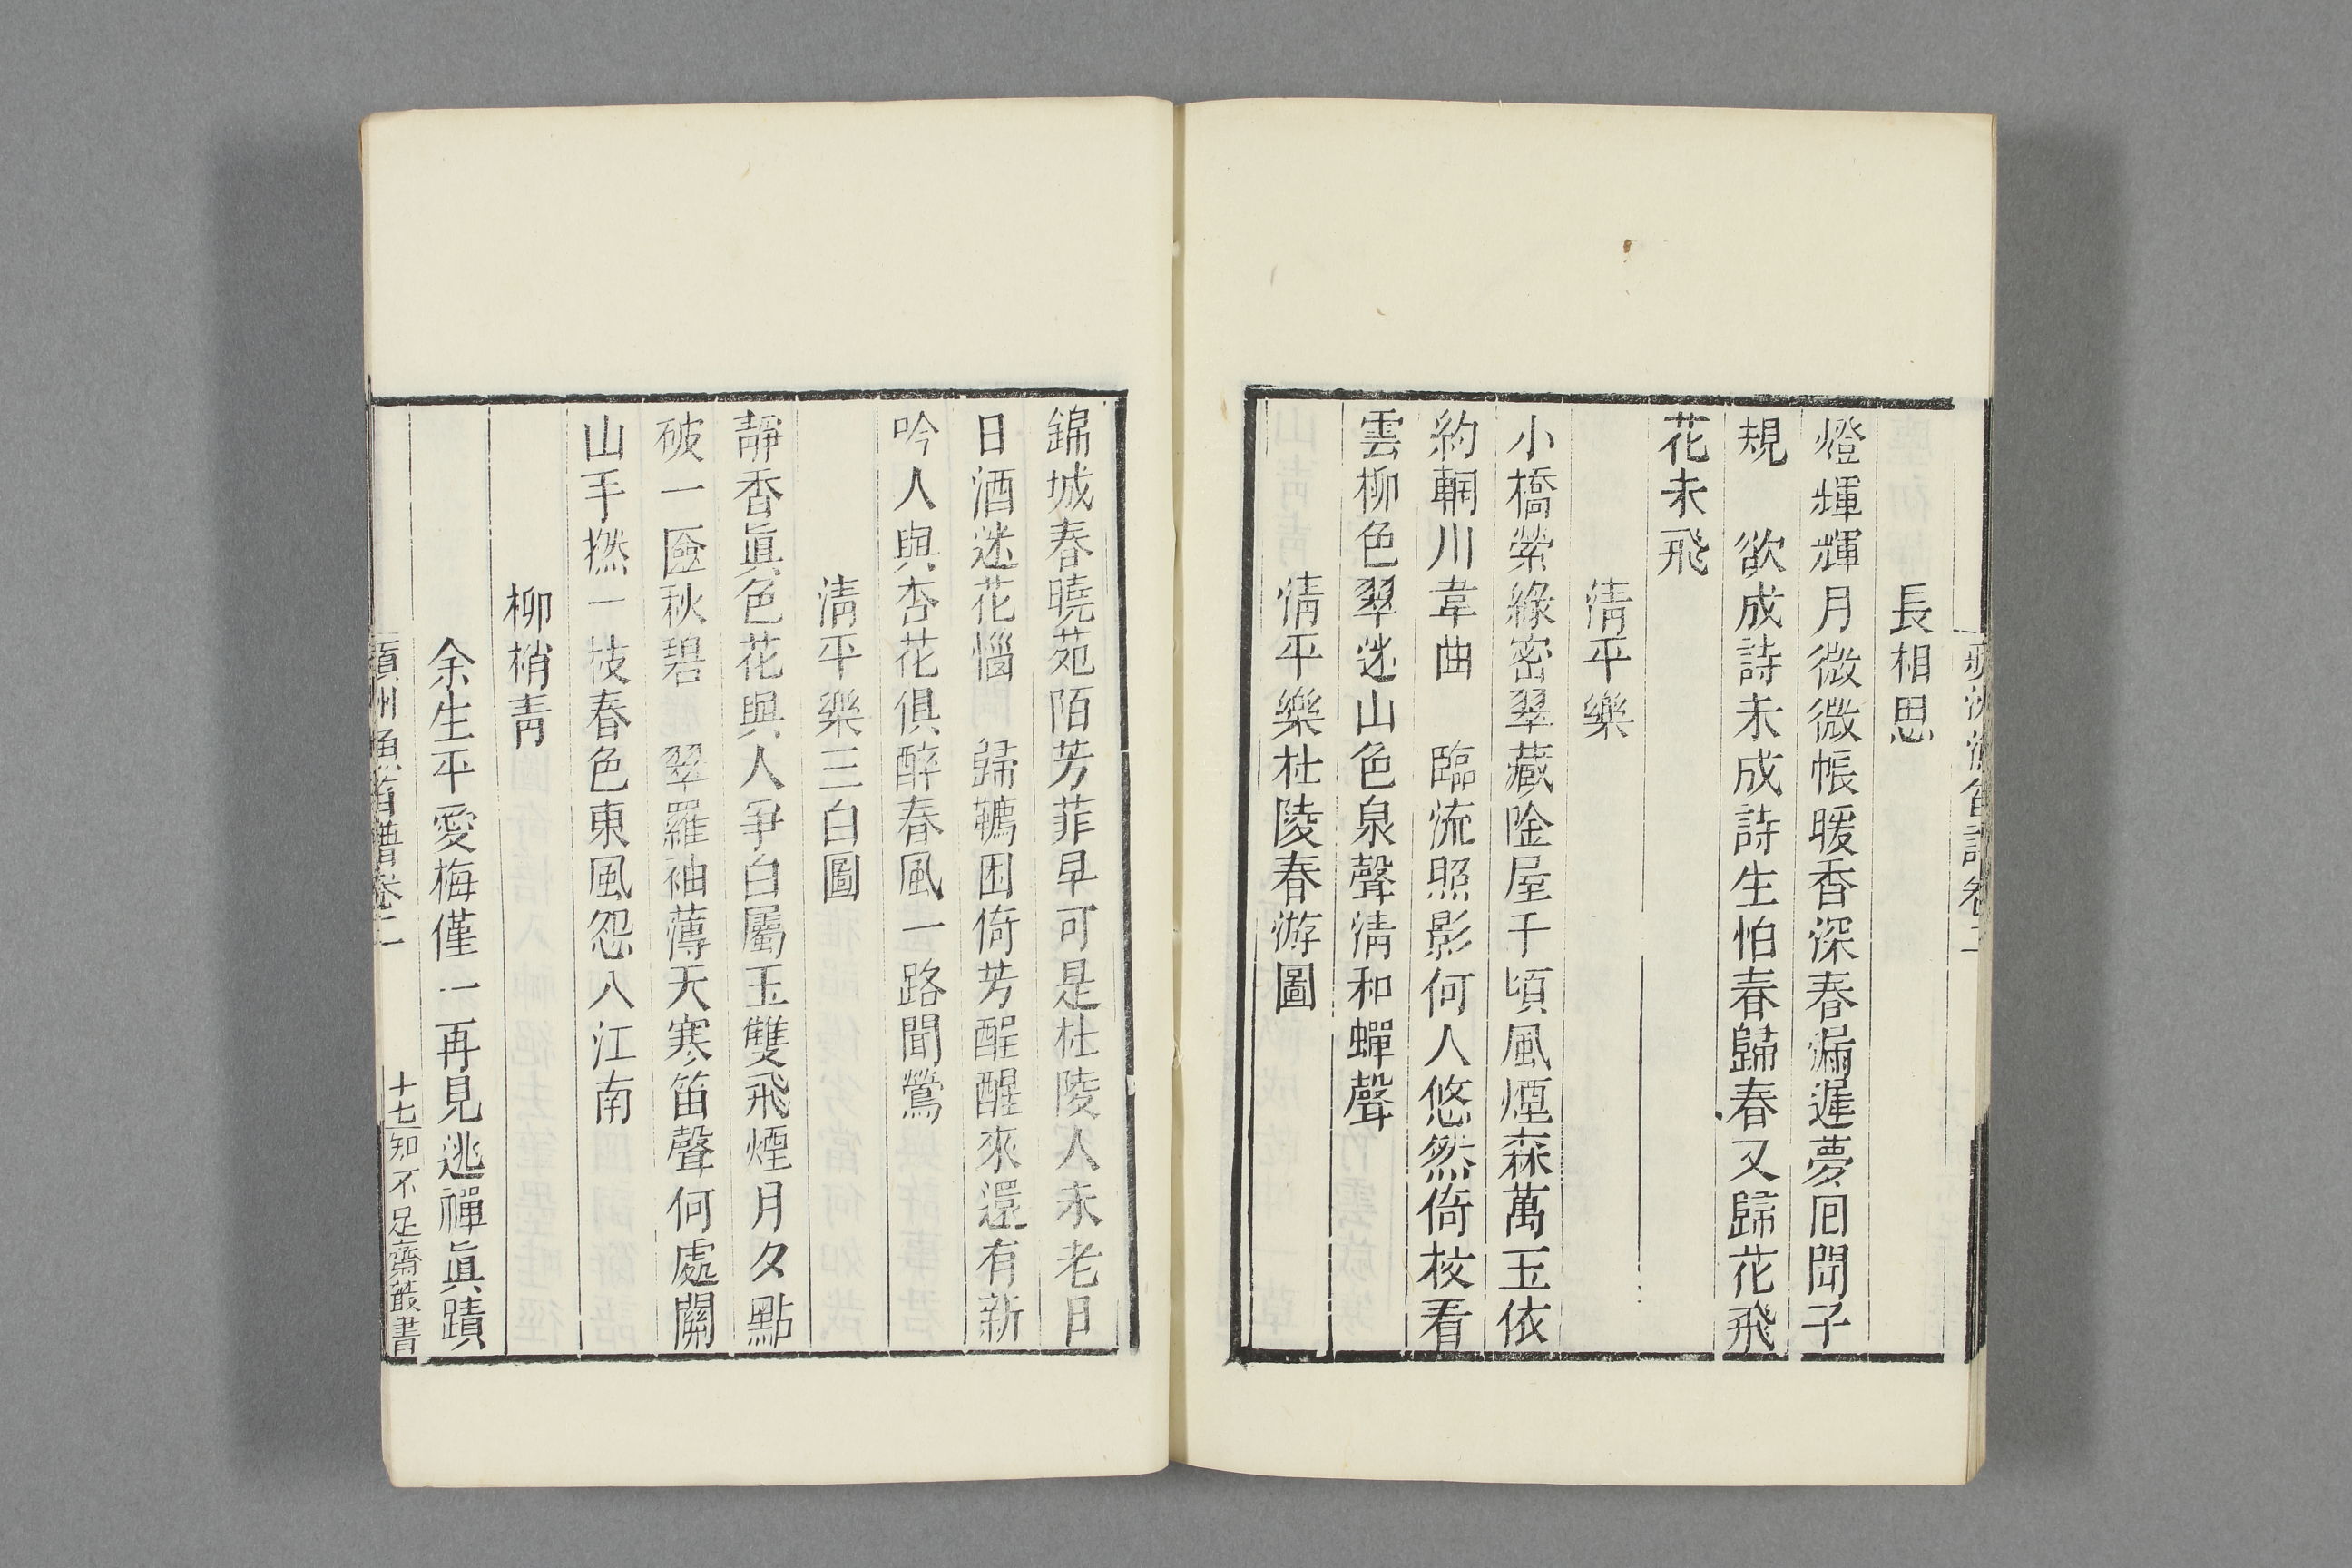 長相思
燈輝輝月微微帳暖香深春漏遲夢回聞子
規　欲成詩未成詩生怕春歸春又歸花飛
花未飛
清平樂
小橋縈綠密翠藏陰屋千頃風煙森萬玉依
約輞川韋曲　臨流照影何人悠然倚杖看
雲柳色翠迷山色泉聲清和蟬聲
清平樂杜陵春游圖
錦城春曉苑陌芳菲早可是杜陵人未老日
日酒迷花惱　歸韉困倚芳酲醒來還有新
吟人與杏花俱醉春風一路聞鶯
清平樂三白圖
靜香眞色花與人爭白屬玉雙飛煙月夕點
破一匳秋碧　翠羅袖薄天寒笛聲何處關
山手撚一枝春色東風怨入江南
柳梢青
余生平愛梅僅一再見逃禪眞蹟
蘋洲漁笛譜卷二
十七
知不足齋叢書